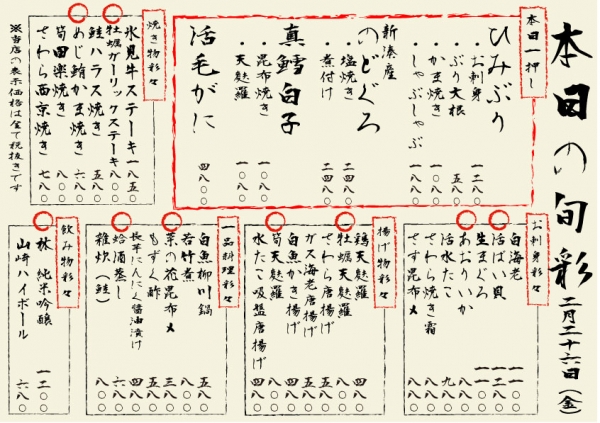 本日の旬彩 二月二十六日(金)
本日一押し
ひみぶり
・お刺身 一二八〇
・ぶり大根 八五〇
・かま焼き 八〇〇
・しゃぶしゃぶ
新湊産
のどぐろ
・塩焼き 二四八〇
・煮付け 二四八〇
真鱈白子
・昆布焼き 一〇〇〇
・天麩羅 一〇〇〇
活毛がに 四八〇〇
焼き物彩々
氷見牛ステーキ 一八五〇
牡蠣ガーリックステーキ 八〇〇
鮭ハラス焼き 五八〇
めじ鮪かま焼き 六八〇
筍田楽焼き 八〇〇
さわら西京焼き 七八〇
※当店の表示価格は全て税抜きです
お刺身彩々
白海老
活ばい貝
生まぐろ
あおりいか
活水たこ
さわら焼き霜
さす昆布〆
揚げ物彩々
鶏天麩羅
牡蠣天麩羅
さわら唐揚げ
ガス海老唐揚げ
白魚かき揚げ
筍天麩羅
水たこ吸盤唐揚げ
一品料理彩々
白魚柳川鍋
若竹煮
菜の花昆布〆
もずく酢
長芋にんにく醤油漬け
蛤酒蒸し
雑炊(鮭)
飲み物彩々
林 純米吟醸 一二〇〇
山崎ハイボール 六八〇